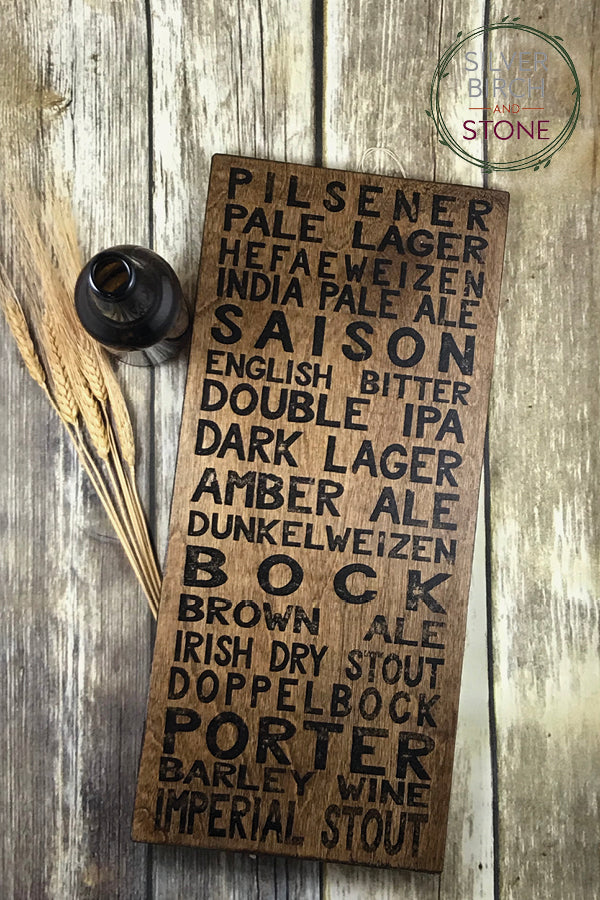 SILVER
BIRCH
AND
STONE
PILSENER
PALE LAGER
HEFAEWEIZEN
INDIA PALE ALE
SAISON
ENGLISH BITTER
DOUBLE IPA
DARK LAGER
AMBER ALE
DUNKELWEIZEN
BOCK
BROWN ALE
IRISH DRY STOUT
DOPPELBOCK
PORTER
BARLEY WINE
IMPERIAL STOUT